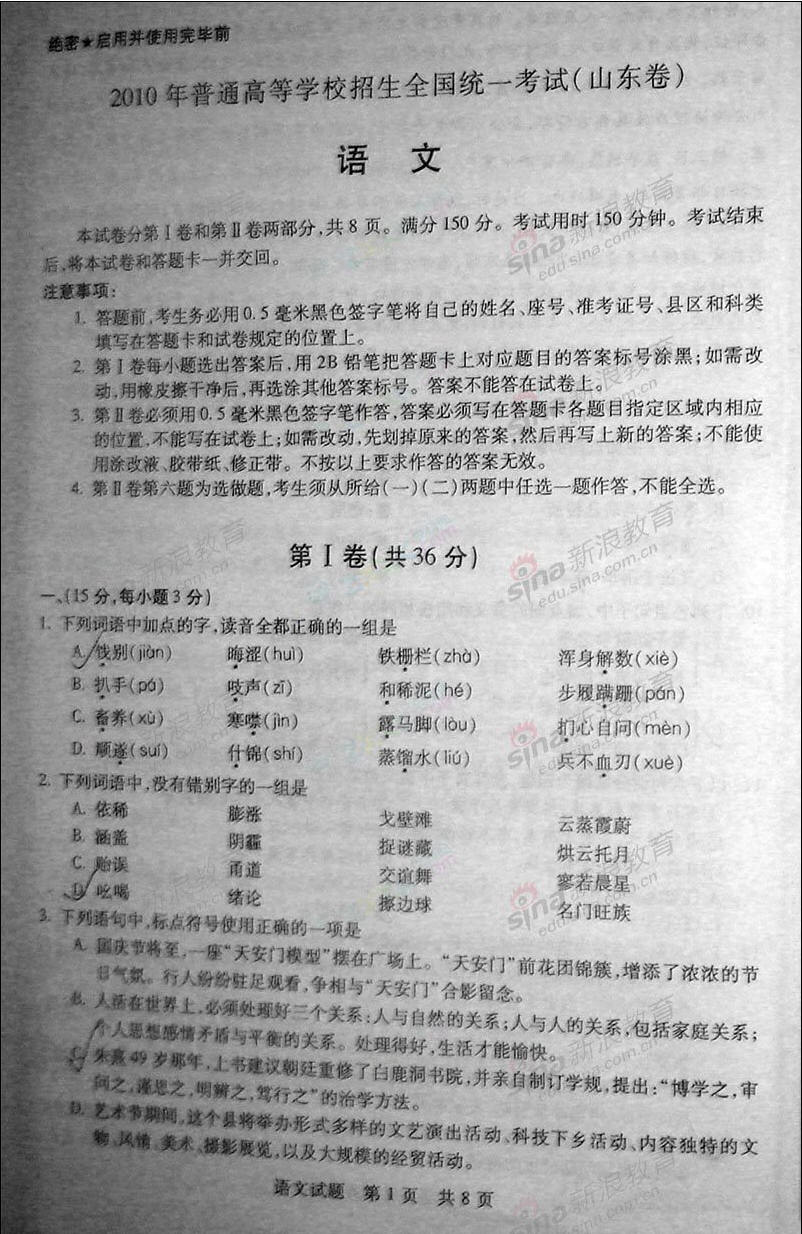 绝密★启用并使用完毕前
2010 年普通高等学校招生全国统一考试(山东卷)
语 文
本试卷分第Ⅰ卷和第Ⅱ卷两部分,共 8 页。满分 150 分。考试用时 150 分钟。考试结束
后,将本试卷和答题卡一并交回。
注意事项:
1. 答题前,考生务必用 0.5 毫米黑色签字笔将自己的姓名、座号、准考证号、县区和科类
填写在答题卡和试卷规定的位置上。
2. 第Ⅰ卷每小题选出答案后,用 2B 铅笔把答题卡上对应题目的答案标号涂黑;如需改
动,用橡皮擦干净后,再选涂其他答案标号。答案不能答在试卷上。
3. 第Ⅱ卷必须用 0.5 毫米黑色签字笔作答,答案必须写在答题卡各题目指定区域内相应
的位置,不能写在试卷上;如需改动,先划掉原来的答案,然后再写上新的答案;不能使
用涂改液、胶带纸、修正带。不按以上要求作答的答案无效。
4. 第Ⅱ卷第六题为选做题,考生须从所给(一)(二)两题中任选一题作答,不能全选。
第Ⅰ卷(共 36 分)
一、(15 分,每小题 3 分)
1. 下列词语中加点的字,读音全都正确的一组是
A. 饯别(jiàn) 晦涩(huì) 铁栅栏(zhà) 浑身解数(xiè)
B. 扒手(pá) 吱声(zī) 和稀泥(hé) 步履蹒跚(pán)
C. 畜养(xù) 寒噤(jìn) 露马脚(lòu) 扪心自问(mèn)
D. 顺遂(suí) 什锦(shí) 蒸馏水(liú) 兵不血刃(xuè)
2. 下列词语中,没有错别字的一组是
A. 依稀 膨涨 戈壁滩 云蒸霞蔚
B. 涵盖 阴霾 捉谜藏 烘云托月
C. 贻误 甬道 交谊舞 寥若晨星
D. 吆喝 绪论 擦边球 名门旺族
3. 下列语句中,标点符号使用正确的一项是
A. 国庆节将至,一座“天安门模型”摆在广场上。“天安门”前花团锦簇,增添了浓浓的节
日气氛。行人纷纷驻足观看,争相与“天安门”合影留念。
B. 人活在世界上,必须处理好三个关系:人与自然的关系;人与人的关系,包括家庭关系;
个人思想感情矛盾与平衡的关系。处理得好,生活才能愉快。
C. 朱熹 49 岁那年,上书建议朝廷重修了白鹿洞书院,并亲自制订学规,提出:“博学之,审
问之,谨思之,明辨之,笃行之”的治学方法。
D. 艺术节期间,这个县将举办形式多样的文艺演出活动、科技下乡活动、内容独特的文
物、风情、美术、摄影展览,以及大规模的经贸活动。
语文试题 第 1 页 共 8 页
sina 新浪教育
edu.sina.com.cn